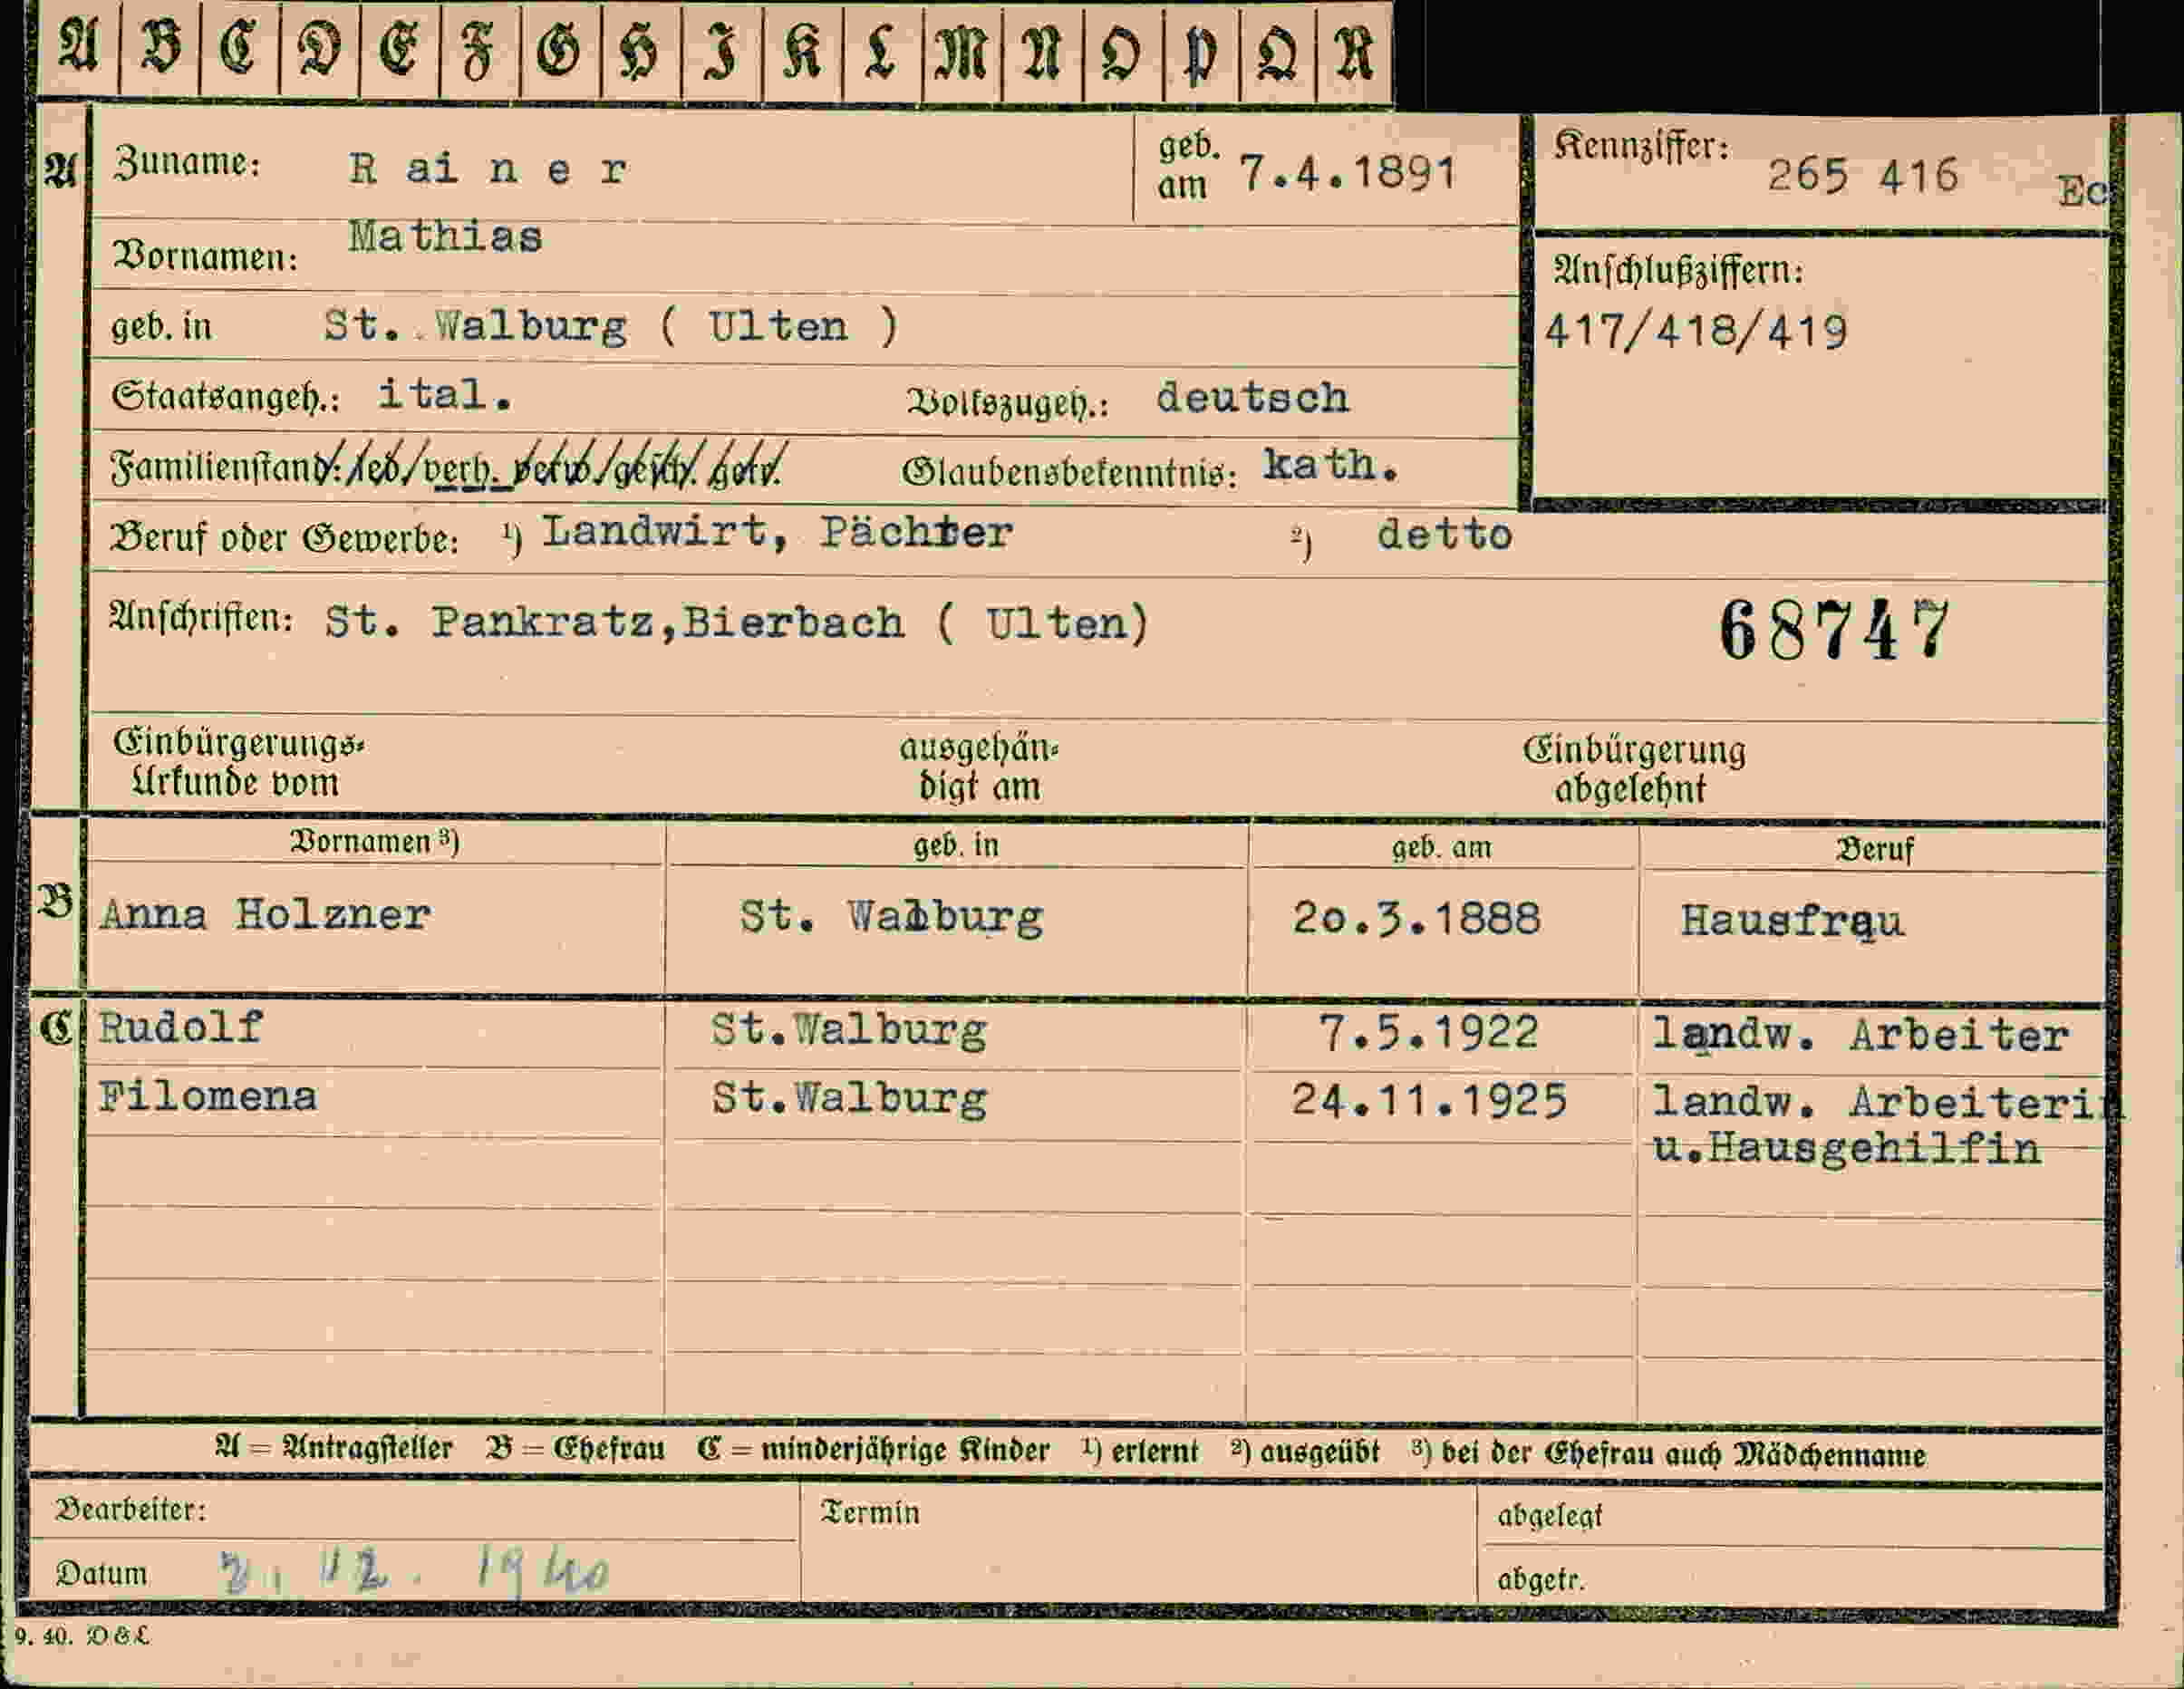 A B C D E F G H I K L M N O P Q R
A Zuname: Rainer geb. am 7.4.1891 Kennziffer: 265 416 Ec
Vornamen: Mathias
Anschlußziffern:
geb. in St. Walburg ( Ulten ) 417/418/419
Staatsangeh.: ital. Volkszugeh.: deutsch
Familienstand: led/verh. verw/gesch. getr. Glaubensbekenntnis: kath.
Beruf oder Gewerbe: 1) Landwirt, Pächter 2) detto
Anschriften: St. Pankratz,Bierbach ( Ulten) 68747
Einbürgerungs- ausgehän- Einbürgerung
Urkunde vom digt am abgelehnt
Vornamen 3) geb. in geb. am Beruf
B Anna Holzner St. Walburg 20.3.1888 Hausfrau
C Rudolf St.Walburg 7.5.1922 landw. Arbeiter
Filomena St.Walburg 24.11.1925 landw. Arbeiterin
u.Hausgehilfin
A = Antragsteller B = Ehefrau C = minderjährige Kinder 1) erlernt 2) ausgeübt 3) bei der Ehefrau auch Mädchenname
Bearbeiter: Termin abgelegt
Datum 3. 12. 1940 abgetr.
9. 40. D & L